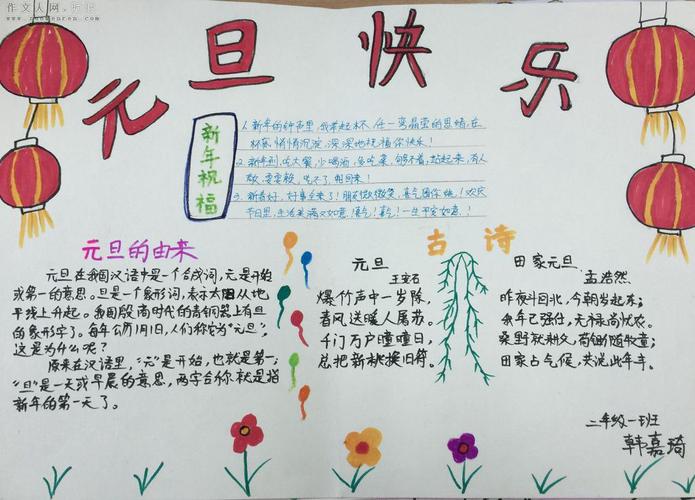 作文人网
元旦快乐
新年祝福
1.新年的钟声里,我举起杯,任一弯晶莹的思绪,在
杯底悄悄沉淀,深深地祝福你快乐!
2.新年到,吃大餐,少喝酒,多吃菜,够不着,站起来,有人
敬,耍耍赖,吃不了,
3.新春好,好事全来了!朋友微微笑,喜气围你绕!欢庆
节日里,生活美满又如意!喜气!喜气!一生平安如意!
元旦的由来
元旦在我国汉语中是一个合成词,元是开始
或第一的意思。旦是一个象形词,表示太阳从地
平线上升起。我国殷商时代的青铜器上有旦
的象形字了。每年公历1月1日,人们称它为“元旦”,
这是为什么呢?
原来在汉语里,“元”是开始,也就是第一;
“旦”是一天或早晨的意思,两字合称就是指
新年的第一天了。
古诗
元旦
王安石
爆竹声中一岁除,
春风送暖入屠苏。
千门万户曈曈日,
总把新桃换旧符。
田家元旦
孟浩然
昨夜斗回北,今朝岁起东;
余年已强仕,无禄尚忧农。
桑野就耕父,荷锄随牧童;
田家占气候,共说此年丰。
二年级一班
韩嘉琦